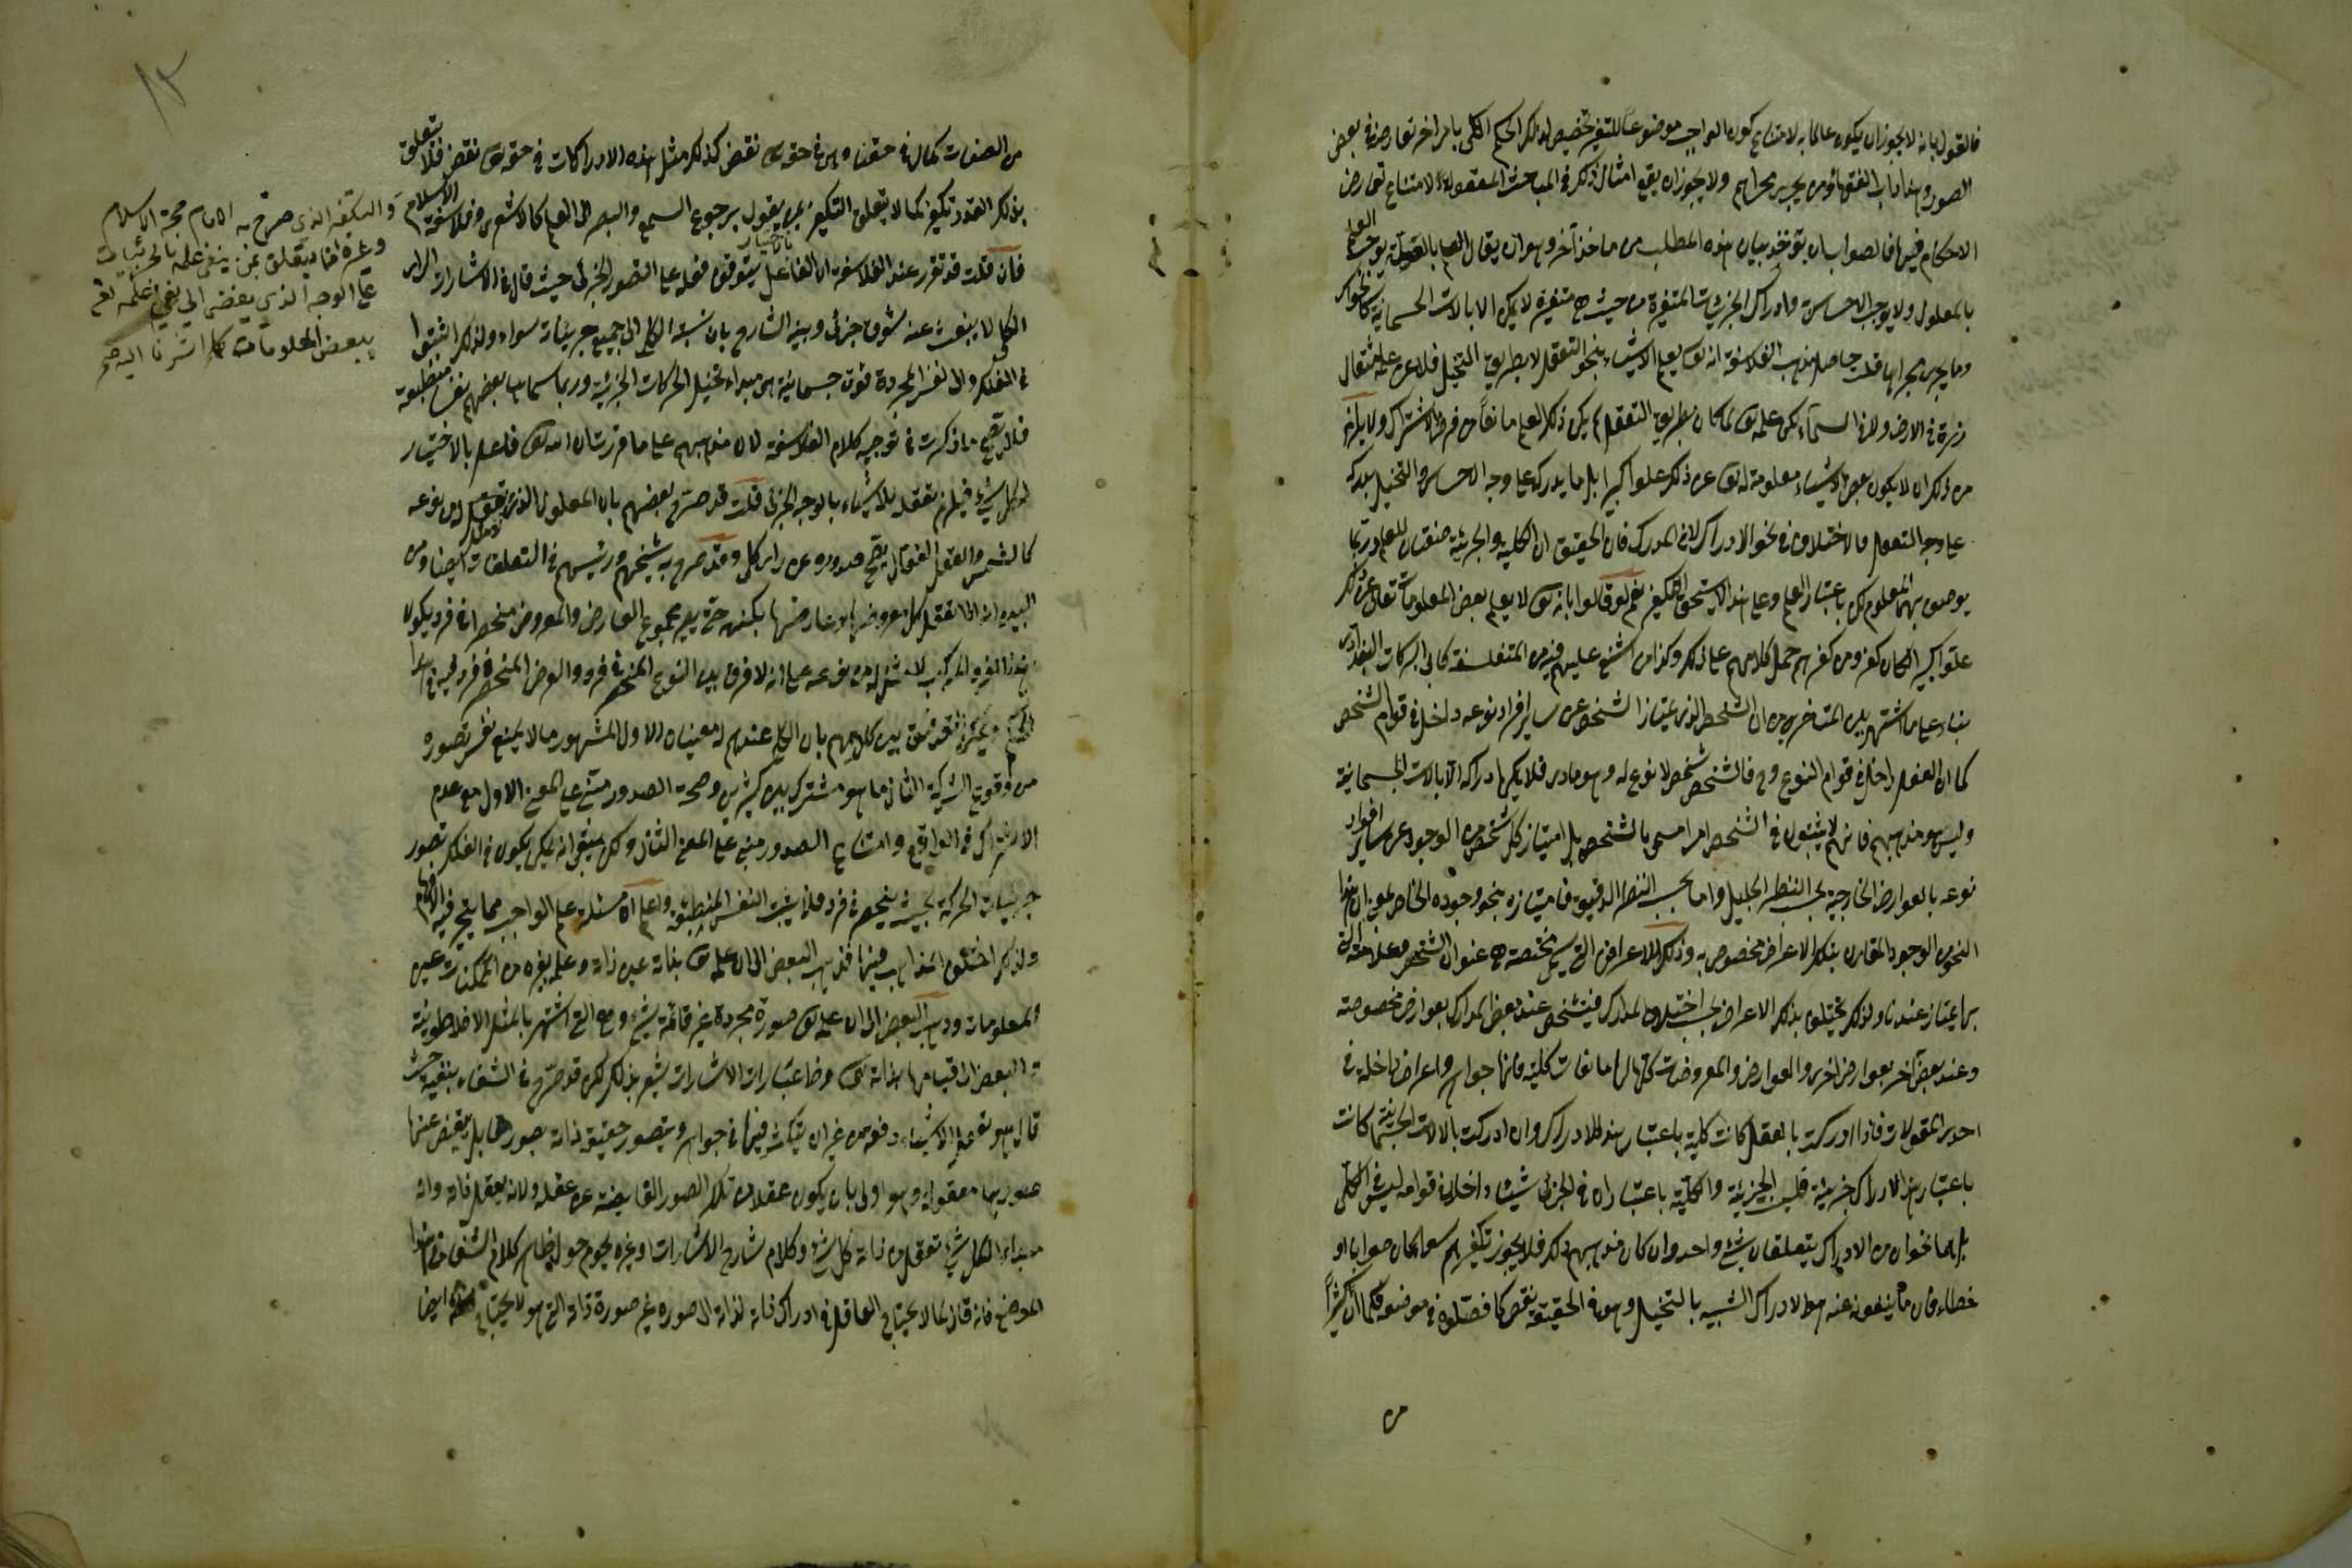 فالقول بانه لا يجوز ان يكون عالما به لامتناع كون الواجب موضوعا للتغير تخصيص لذلك الحكم الكلى بامر اخر تعارضه في بعض
الصور وهذا داب الفقهاء ومن يجرى مجراهم ولا يجوز ان يقع امثال ذلك في المباحث المعقولة لامتناع تعارض
الاحكام فيها فالصواب ان يؤخذ بيان هذه المطلب من ماخذ آخر وهو ان يقال العلم بالعلة يوجب العلم
بالمعلول ولا يوجب الاحساس وادراك الجزئيات المتغيرة من حيث هي متغيرة لا يمكن الا بالالات الجسمانية كالحواس
وما يجرى مجراها قلت حاصل مذهب الفلاسفة انه تعالى يعلم الاشياء بنحو التعقل لا بطريق التخيل فلا يعزب عن علمه مثقال
ذرة في الارض ولا في السماء لكن علمه تعالى لما كان بطريق التعقل لم يكن ذلك العلم مانعا من فرض الاشتراك ولا يلزم
من ذلك ان لا يكون بعض الاشياء معلومة له تعالى عن ذلك علوا كبيرا بل ما يدركه على وجه الاحساس والتخيل يدركه
على وجه التعقل فالاختلاف في نحو الادراك لا في المدرك فان التحقيق ان الكلية والجزئية صفتان للعلم وربما
يوصف بهما المعلوم لكن باعتبار العلم وعلى هذا لا يستحق التكفير نعم لو قالوا بانه تعالى لا يعلم بعض المعلومات تعالى عن ذلك
علوا كبيرا لكان كفرا ومن كفرهم حمل كلامهم على ذلك وكذا من شنع عليهم فيه من المتفلسفة كابى البركات البغدادى
بناء على ما اشتهر بين المتاخرين من ان التشخص الذى يمتاز الشخص عن ساير افراد نوعه داخل في قوام الشخص
كما ان الفصل داخل في قوام النوع وح فالتشخص شخص لا نوع له وهو مادى فلا يمكن ادراكه الا بالالات الجسمانية
وليس هو مذهبهم فانهم لا يثبتون في الشخص امرا مسمى بالتشخص بل امتياز كل شخص من الوجود عن ساير افراد
نوعه بالعوارض الخارجية بحسب النظر الجليل واما بحسب النظر الدقيق فامتيازه بنحو وجوده الخاص بمعنى ان هذا
النحو من الوجود المقارن بتلك الاعراض مخصوص به وتلك الاعراض التى هي مختصة هي عنوان الشخص وعلامته التى
بها يمتاز عندنا ولذلك يختلف بذلك الاعراض بحسب اختلاف المدارك فيتشخص عند بعض المدارك بعوارض مخصوصة
وعند بعض آخر بعوارض اخرى والعوارض والمعروضات كلها لها ماهيات كلية فانها جواهر واعراض داخلة في
احدى المقولات فاذا ادركت بالعقل كانت كلية باعتبار هذا الادراك وان ادركت بالالات الجسمانية كانت
باعتبار هذا الادراك جزئية فليست الجزئية والكلية باعتبار ان في الجزئى شيئا داخلا في قوامه ليس في الكلى
بل هما نحوان من الادراك يتعلقان بشئ واحد وان كان مذهبهم ذلك فلا يجوز تكفيرهم سواء كان صوابا او
خطاء فان ما ينفونه عنه هو الادراك الشبيه بالتخيل وهو في الحقيقة نقص كما فصلوه في موضعه فكما ان كثيرا
من
من الصفات كمال في حقنا وهى في حقه تعالى نقص كذلك مثل هذه الادراكات في حقه تعالى نقص فلا يتعلق
بذلك القدر تكفير كما لا يتعلق التكفير بمن يقول برجوع السمع والبصر الى العلم كالاشعرى وفلاسفة الاسلام
فان قلت قد تقرر عند الفلاسفة ان الفاعل بالاختيار يتوقف فعله على التصور الجزئى حيث قال في الاشارات الراى
الكلى لا ينبعث عنه شوق جزئى وبينه الشارح بان نسبة الكلى الى جميع جزئياته سواء ولذلك اثبتوا
في الفلك وراء النفس المجردة قوة جسمانية هى مبداء تخيل الحركات الجزئية وربما سماها بعضهم نفسا منطبعة
فلا يصح ما ذكرت في توجيه كلام الفلاسفة لان مذهبهم على ما قررت ان الله تعالى فاعل بالاختيار
لكل شئ فيلزم تعقله للاشياء بالوجه الجزئى قلت قد صرح بعضهم بان المعلول الذى لا مثل له من نوعه
كالشمس والعقل الفعال يصح صدوره عن راى كلى وقد صرح به شيخهم ورئيسهم في التعليقات ايضا ومن
البين انه اذا تعقل كل معروض بالاعراض لها بكنهه حتى يعلم مجموع العارض والمعروض منحصرا في فرد يكون
هذا الفرد المركب لا مثل له من نوعه على انه لا فرق بين النوع المنحصر في فرد والعرض المنحصر في فرد في هذا
الحكم ويمكن التوفيق بين كلامهم بان الكلى عندهم له معنيان الاول المشهور ما لا يمنع نفس تصوره
من وقوع الشركة الثانى ما هو مشترك بين كثيرين وصحة الصدور مبنى على المعنى الاول مع عدم
الاشتراك في الواقع وامتناع الصدور مبنى على المعنى الثانى ولكن يبقى انه يمكن ان يكون في الفلك تصور
جزئيات الحركة بحيث ينحصر في فرد فلا يثبت النفس المنطبعة واعلم ان مسئلة علم الواجب مما يتحير فيه الافهام
ولذلك اختلفوا المذاهب فيها فذهب البعض الى ان علمه تعالى بذاته عين ذاته وعلمه بغيره من الممكنات عين
المعلومات وذهب البعض الى ان علمه تعالى صورة مجردة غير قائمة بشئ وهى التى اشتهر بالمثل الافلاطونية
والبعض الى قيامها بذاته تعالى وظاهر عبارات الاشارات يشعر بذلك لكن قد صرح في الشفاء بنفيه حيث
قال هو تعالى يعقل الاشياء دفعة من غير ان يتكثر فيها في جوهره ويتصور حقيقة ذاته بصورها بل يفيض عنها
صورها معقولة وهو اولى بان يكون عقلا من تلك الصور الفايضة عن عقله ولانه يعقل ذاته وانه
مبداء لكل شئ تعقل من ذاته كل شئ وكلام شارح الاشارات وغيره يحوم حول ظاهر كلام الشفاء في هذا
الموضع فانه قال كما لا يحتاج العاقل في ادراك ذاته لذاته الى صورة غير صورة ذاته التى هو لا يحتاج ايضا
والتكفير الذى صرح به الامام حجة الاسلام
وغيره انما يتعلق بمن ينفى علمه بالجزئيات
على الوجه الذي يفضى الى نفي علمه تعالى
ببعض المعلومات كما اشرنا اليه صح
١٣